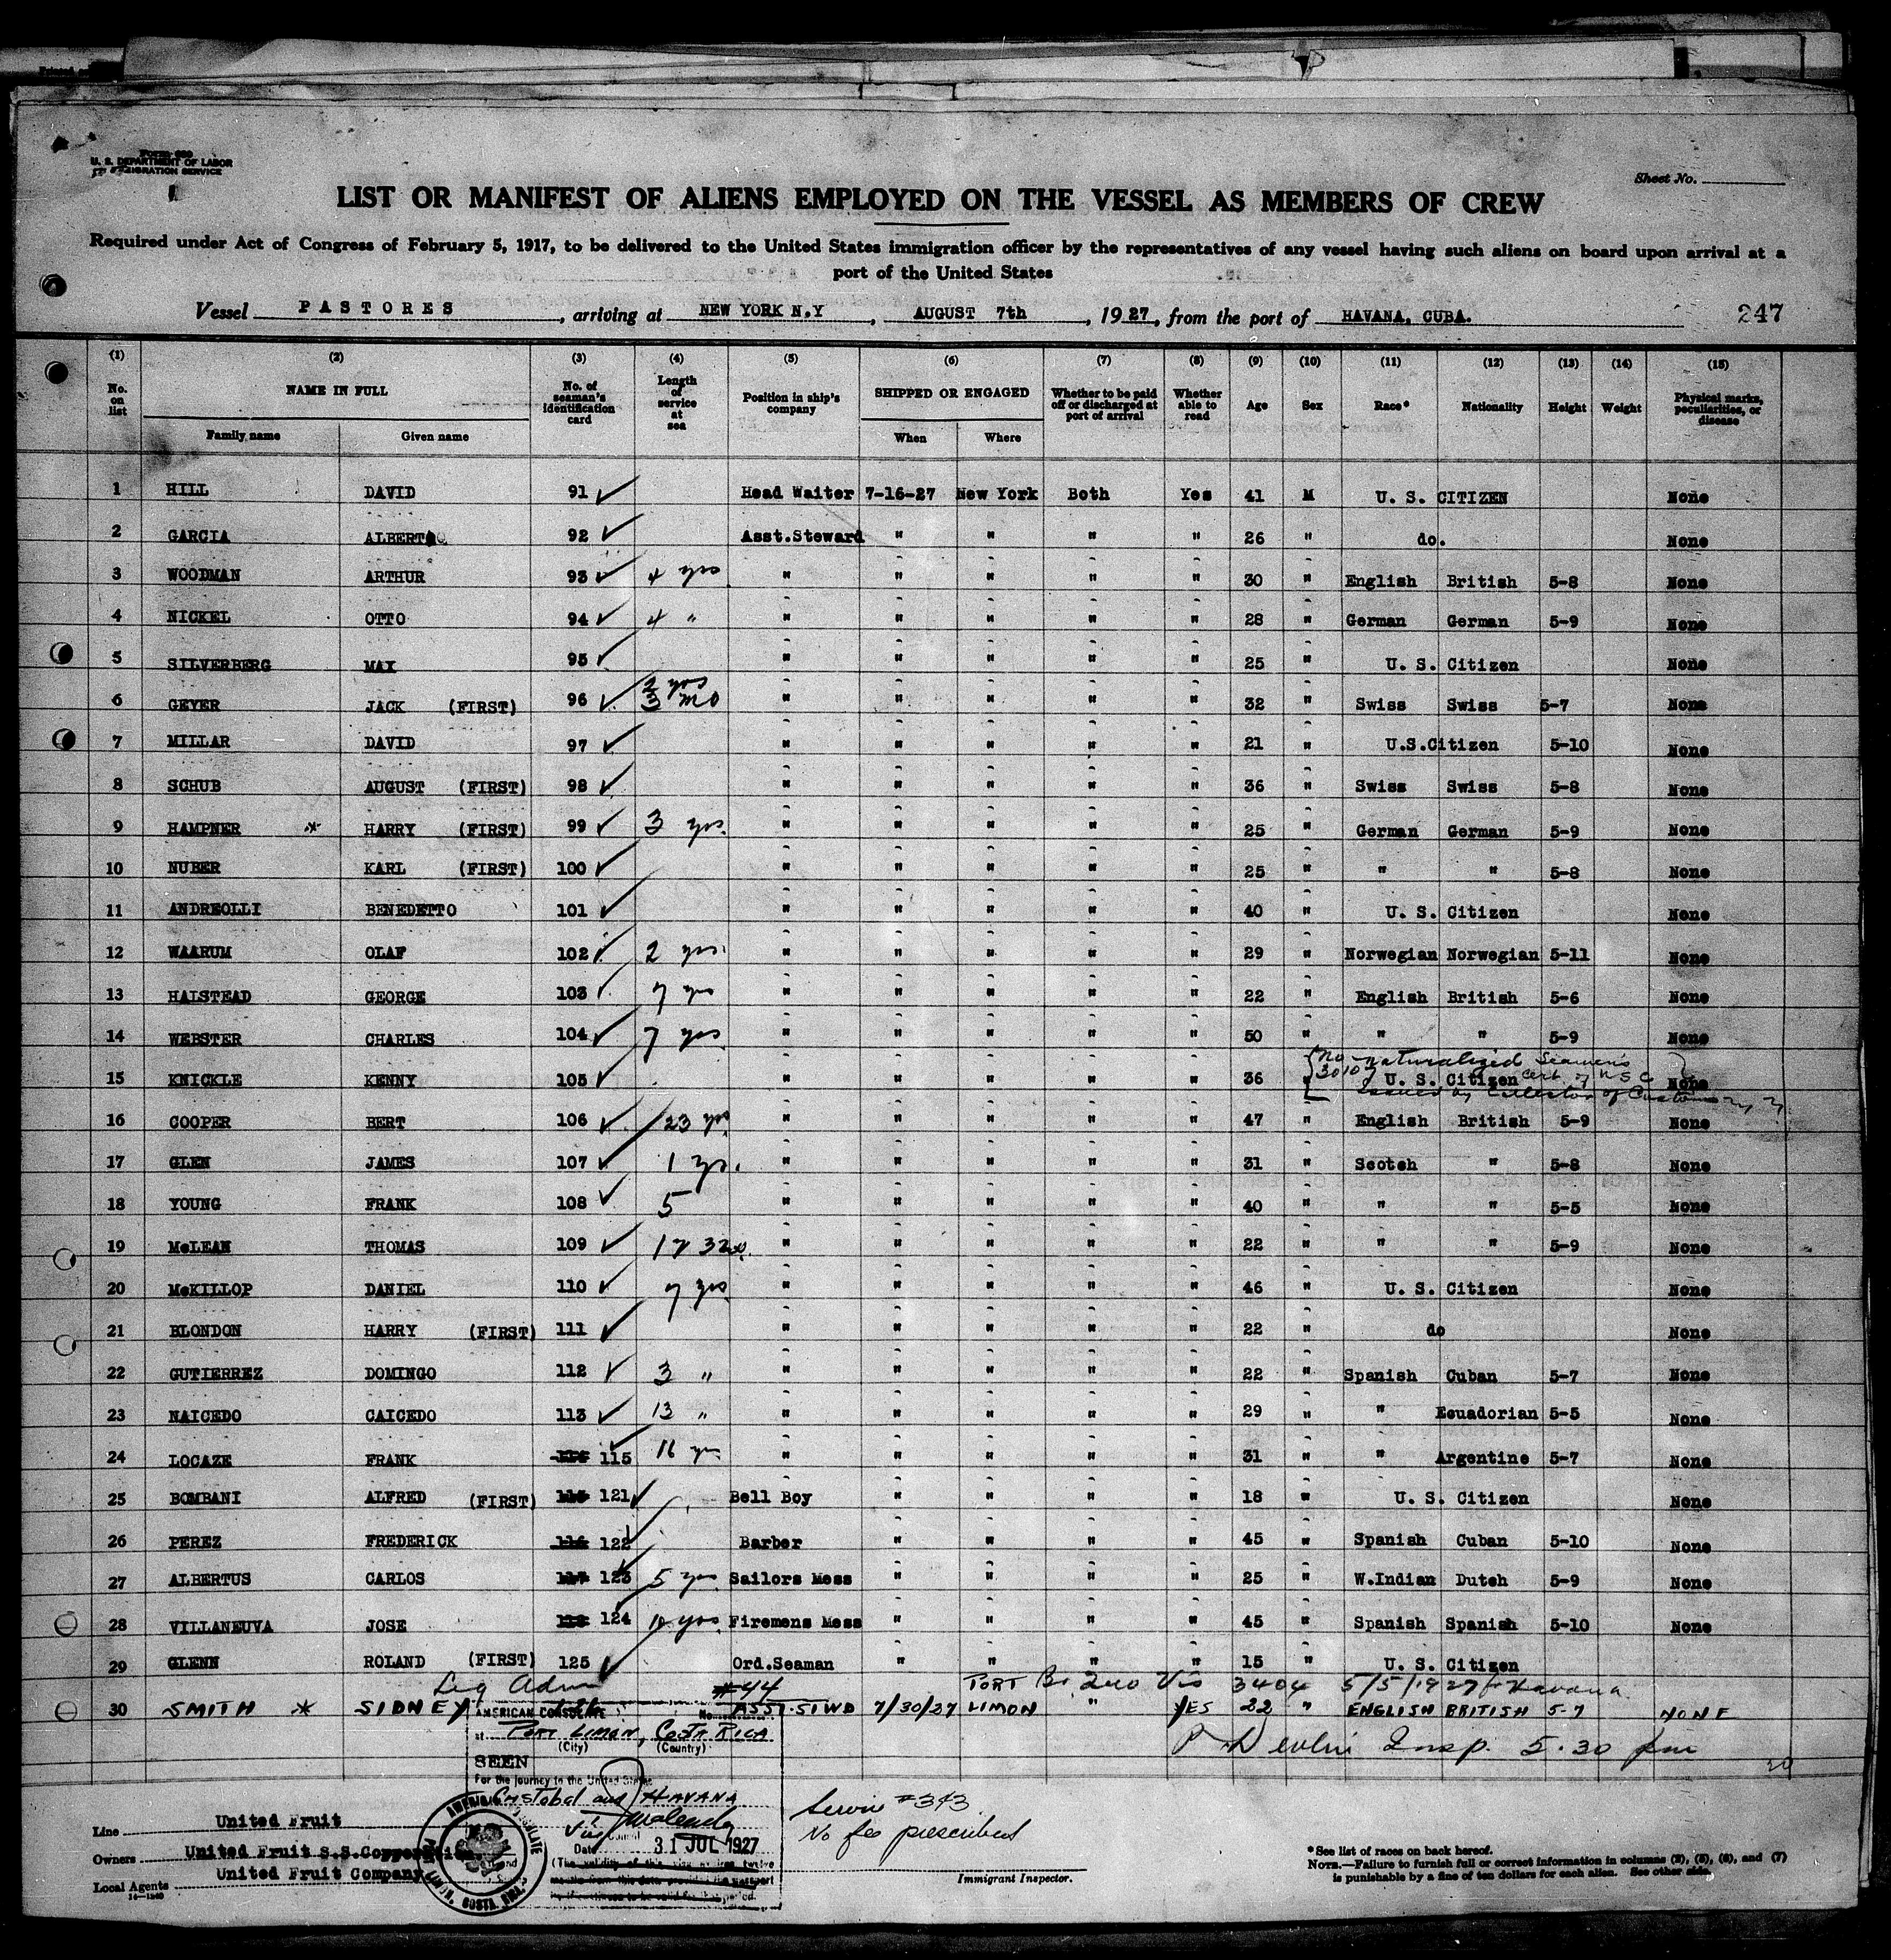 Form 689
U. S. DEPARTMENT OF LABOR
IMMIGRATION SERVICE
Sheet No.
LIST OR MANIFEST OF ALIENS EMPLOYED ON THE VESSEL AS MEMBERS OF CREW
Required under Act of Congress of February 5, 1917, to be delivered to the United States immigration officer by the representatives of any vessel having such aliens on board upon arrival at a
port of the United States
Vessel PASTORES, arriving at NEW YORK N.Y, AUGUST 7th, 1927, from the port of HAVANA, CUBA. 247
(1) (2) (3) (4) (5) (6) (7) (8) (9) (10) (11) (12) (13) (14) (15)
No. on list NAME IN FULL No. of seaman's identification card Length of service at sea Position in ship's company SHIPPED OR ENGAGED Whether to be paid off or discharged at port of arrival Whether able to read Age Sex Race* Nationality Height Weight Physical marks, peculiarities, or disease
Family name Given name When Where
1 HILL DAVID 91 Head Waiter 7-16-27 New York Both Yes 41 M U. S. CITIZEN None
2 GARCIA ALBERT 92 Asst.Steward " " " " 26 " do. None
3 WOODMAN ARTHUR 93 4 yrs " " " " " 30 " English British 5-8 None
4 NICKEL OTTO 94 4 " " " " " " 28 " German German 5-9 None
5 SILVERBERG MAX 95 " " " " " 25 " U. S. Citizen None
6 GEYER JACK (FIRST) 96 2 yrs 3 mo " " " " " 32 " Swiss Swiss 5-7 None
7 MILLAR DAVID 97 " " " " " 21 " U.S.Citizen 5-10 None
8 SCHUB AUGUST (FIRST) 98 " " " " " 36 " Swiss Swiss 5-8 None
9 HAMPNER * HARRY (FIRST) 99 3 yrs. " " " " " 25 " German German 5-9 None
10 NUBER KARL (FIRST) 100 " " " " " 25 " " " 5-8 None
11 ANDREOLLI BENEDETTO 101 " " " " " 40 " U. S. Citizen None
12 WAARUM OLAF 102 2 yrs. " " " " " 29 " Norwegian Norwegian 5-11 None
13 HALSTEAD GEORGE 103 7 yrs " " " " " 22 " English British 5-6 None
14 WEBSTER CHARLES 104 7 yrs. " " " " " 50 " " " 5-9 None
No 3010 naturalized Seamen's
15 KNICKLE KENNY 105 " " " " " 36 " U. S. Citizen Cert. of U S C None
issued by Collector of Customs N Y
16 COOPER BERT 106 23 yrs " " " " " 47 " English British 5-9 None
17 GLEN JAMES 107 1 yr. " " " " " 31 " Scotch " 5-8 None
18 YOUNG FRANK 108 5 " " " " " 40 " " " 5-5 None
19 McLEAN THOMAS 109 " " " " " 22 " " " 5-9 None
20 McKILLOP DANIEL 110 7 yrs. " " " " " 46 " U. S. Citizen None
21 BLONDON HARRY (FIRST) 111 " " " " " 22 " do None
22 GUTIERREZ DOMINGO 112 3 " " " " " " 22 " Spanish Cuban 5-7 None
23 NAICEDO CAICEDO 113 13 " " " " " " 29 " " Ecuadorian 5-5 None
24 LOCAZE FRANK 115 11 yrs " " " " " 31 " " Argentine 5-7 None
25 BOMBANI ALFRED (FIRST) 121 Bell Boy " " " " 18 " U. S. Citizen None
26 PEREZ FREDERICK 122 Barber " " " " 45 " Spanish Cuban 5-10 None
27 ALBERTUS CARLOS 123 5 yrs Sailors Mess " " " " 25 " W.Indian Dutch 5-9 None
28 VILLANEUVA JOSE 124 yrs. Firemens Mess " " " " 45 " Spanish Spanish 5-10 None
29 GLENN ROLAND (FIRST) 125 Ord.Seaman " " " " 15 " U. S. Citizen
#44 PORT Vis 3404 5/5/1927 Havana
30 SMITH * SIDNEY ASST. STWD 7/30/27 LIMON " YES 22 " ENGLISH BRITISH 5-7 NONE
AMERICAN CONSULATE No.
at PORT LIMON, COSTA RICA
(City) (Country)
Insp. 5.30 pm
SEEN
For the journey to the United States
Cristobal and HAVANA
Consul
Date 31 JUL 1927
(The validity of this visa expires twelve
months from this date, provided the passport
by it continues to be valid for that period.
AMERICAN CONSULATE
PORT LIMON, COSTA RICA
Service #343
No fee prescribed
Immigrant Inspector.
Line United Fruit
Owners United Fruit S.S.Copporation
Local Agents United Fruit Company
14-1240
*See list of races on back hereof.
NOTE.—Failure to furnish full or correct information in columns (2), (5), (6), and (7)
is punishable by a fine of ten dollars for each alien. See other side.